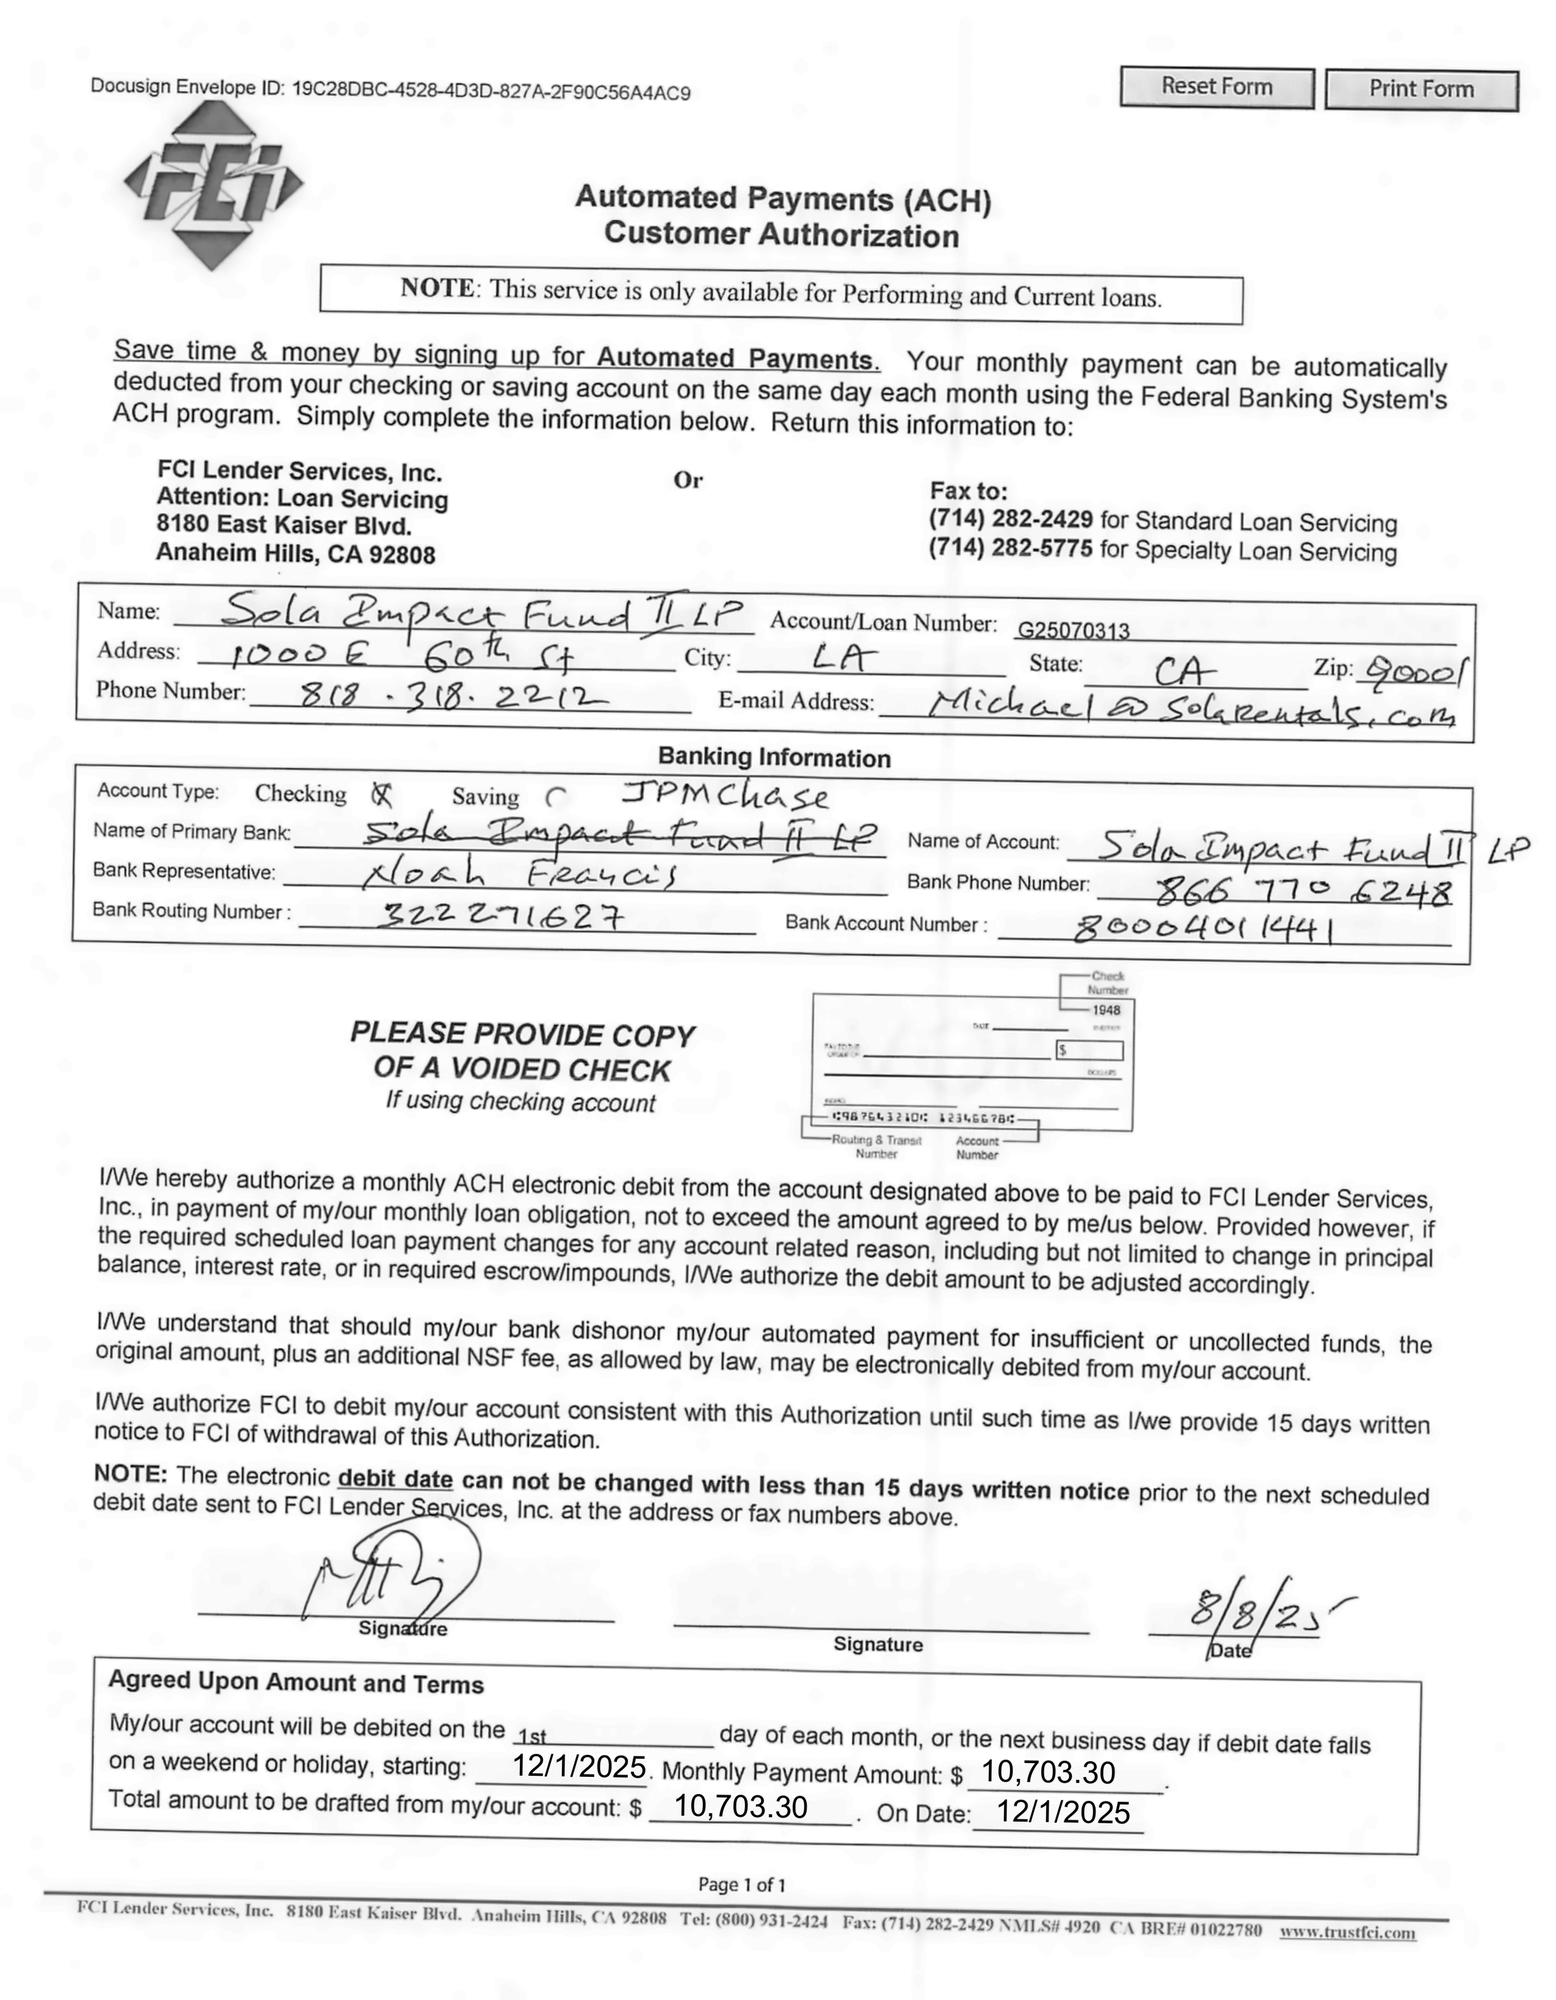 Docusign Envelope ID: 19C28DBC-4528-4D3D-827A-2F90C56A4AC9
Reset Form Print Form
FCI
Automated Payments (ACH)
Customer Authorization
NOTE: This service is only available for Performing and Current loans.
Save time & money by signing up for Automated Payments. Your monthly payment can be automatically
deducted from your checking or saving account on the same day each month using the Federal Banking System's
ACH program. Simply complete the information below. Return this information to:
FCI Lender Services, Inc.
Attention: Loan Servicing
8180 East Kaiser Blvd.
Anaheim Hills, CA 92808
Or
Fax to:
(714) 282-2429 for Standard Loan Servicing
(714) 282-5775 for Specialty Loan Servicing
Name: Sola Impact Fund II LP Account/Loan Number: G25070313
Address: 1000 E 60th St City: LA State: CA Zip: 90001
Phone Number: 818.318.2212 E-mail Address: Michael@SolaRentals.com
Banking Information
Account Type: Checking X Saving JPMChase
Name of Primary Bank: Sola Impact Fund II LP Name of Account: Sola Impact Fund II LP
Bank Representative: Noah Francis Bank Phone Number: 866 770 6248
Bank Routing Number : 322271627 Bank Account Number : 80004011441
PLEASE PROVIDE COPY
OF A VOIDED CHECK
If using checking account
Check
Number
1948
DATE
$
DOLLARS
Routing & Transit
Number
Account
Number
I/We hereby authorize a monthly ACH electronic debit from the account designated above to be paid to FCI Lender Services,
Inc., in payment of my/our monthly loan obligation, not to exceed the amount agreed to by me/us below. Provided however, if
the required scheduled loan payment changes for any account related reason, including but not limited to change in principal
balance, interest rate, or in required escrow/impounds, I/We authorize the debit amount to be adjusted accordingly.
I/We understand that should my/our bank dishonor my/our automated payment for insufficient or uncollected funds, the
original amount, plus an additional NSF fee, as allowed by law, may be electronically debited from my/our account.
I/We authorize FCI to debit my/our account consistent with this Authorization until such time as I/we provide 15 days written
notice to FCI of withdrawal of this Authorization.
NOTE: The electronic debit date can not be changed with less than 15 days written notice prior to the next scheduled
debit date sent to FCI Lender Services, Inc. at the address or fax numbers above.
8/8/25
Signature Signature Date
Agreed Upon Amount and Terms
My/our account will be debited on the 1st day of each month, or the next business day if debit date falls
on a weekend or holiday, starting: 12/1/2025. Monthly Payment Amount: $ 10,703.30.
Total amount to be drafted from my/our account: $ 10,703.30. On Date: 12/1/2025
Page 1 of 1
FCI Lender Services, Inc. 8180 East Kaiser Blvd. Anaheim Hills, CA 92808 Tel: (800) 931-2424 Fax: (714) 282-2429 NMLS# 4920 CA BRE# 01022780 www.trustfci.com